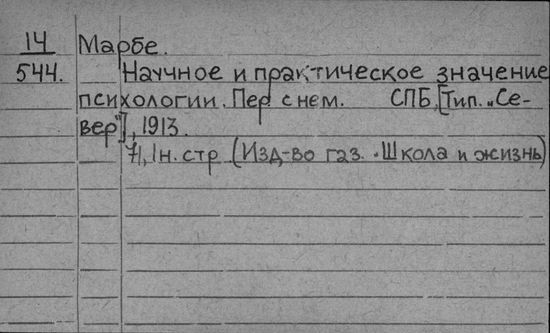 14 Марбе.
544. Научное и практическое значение
психологии. Пер с нем. СПБ, [Тип. „Се-
вер"], 1913.
71, 1 н. стр (Изд-во газ. „Школа и жизнь)